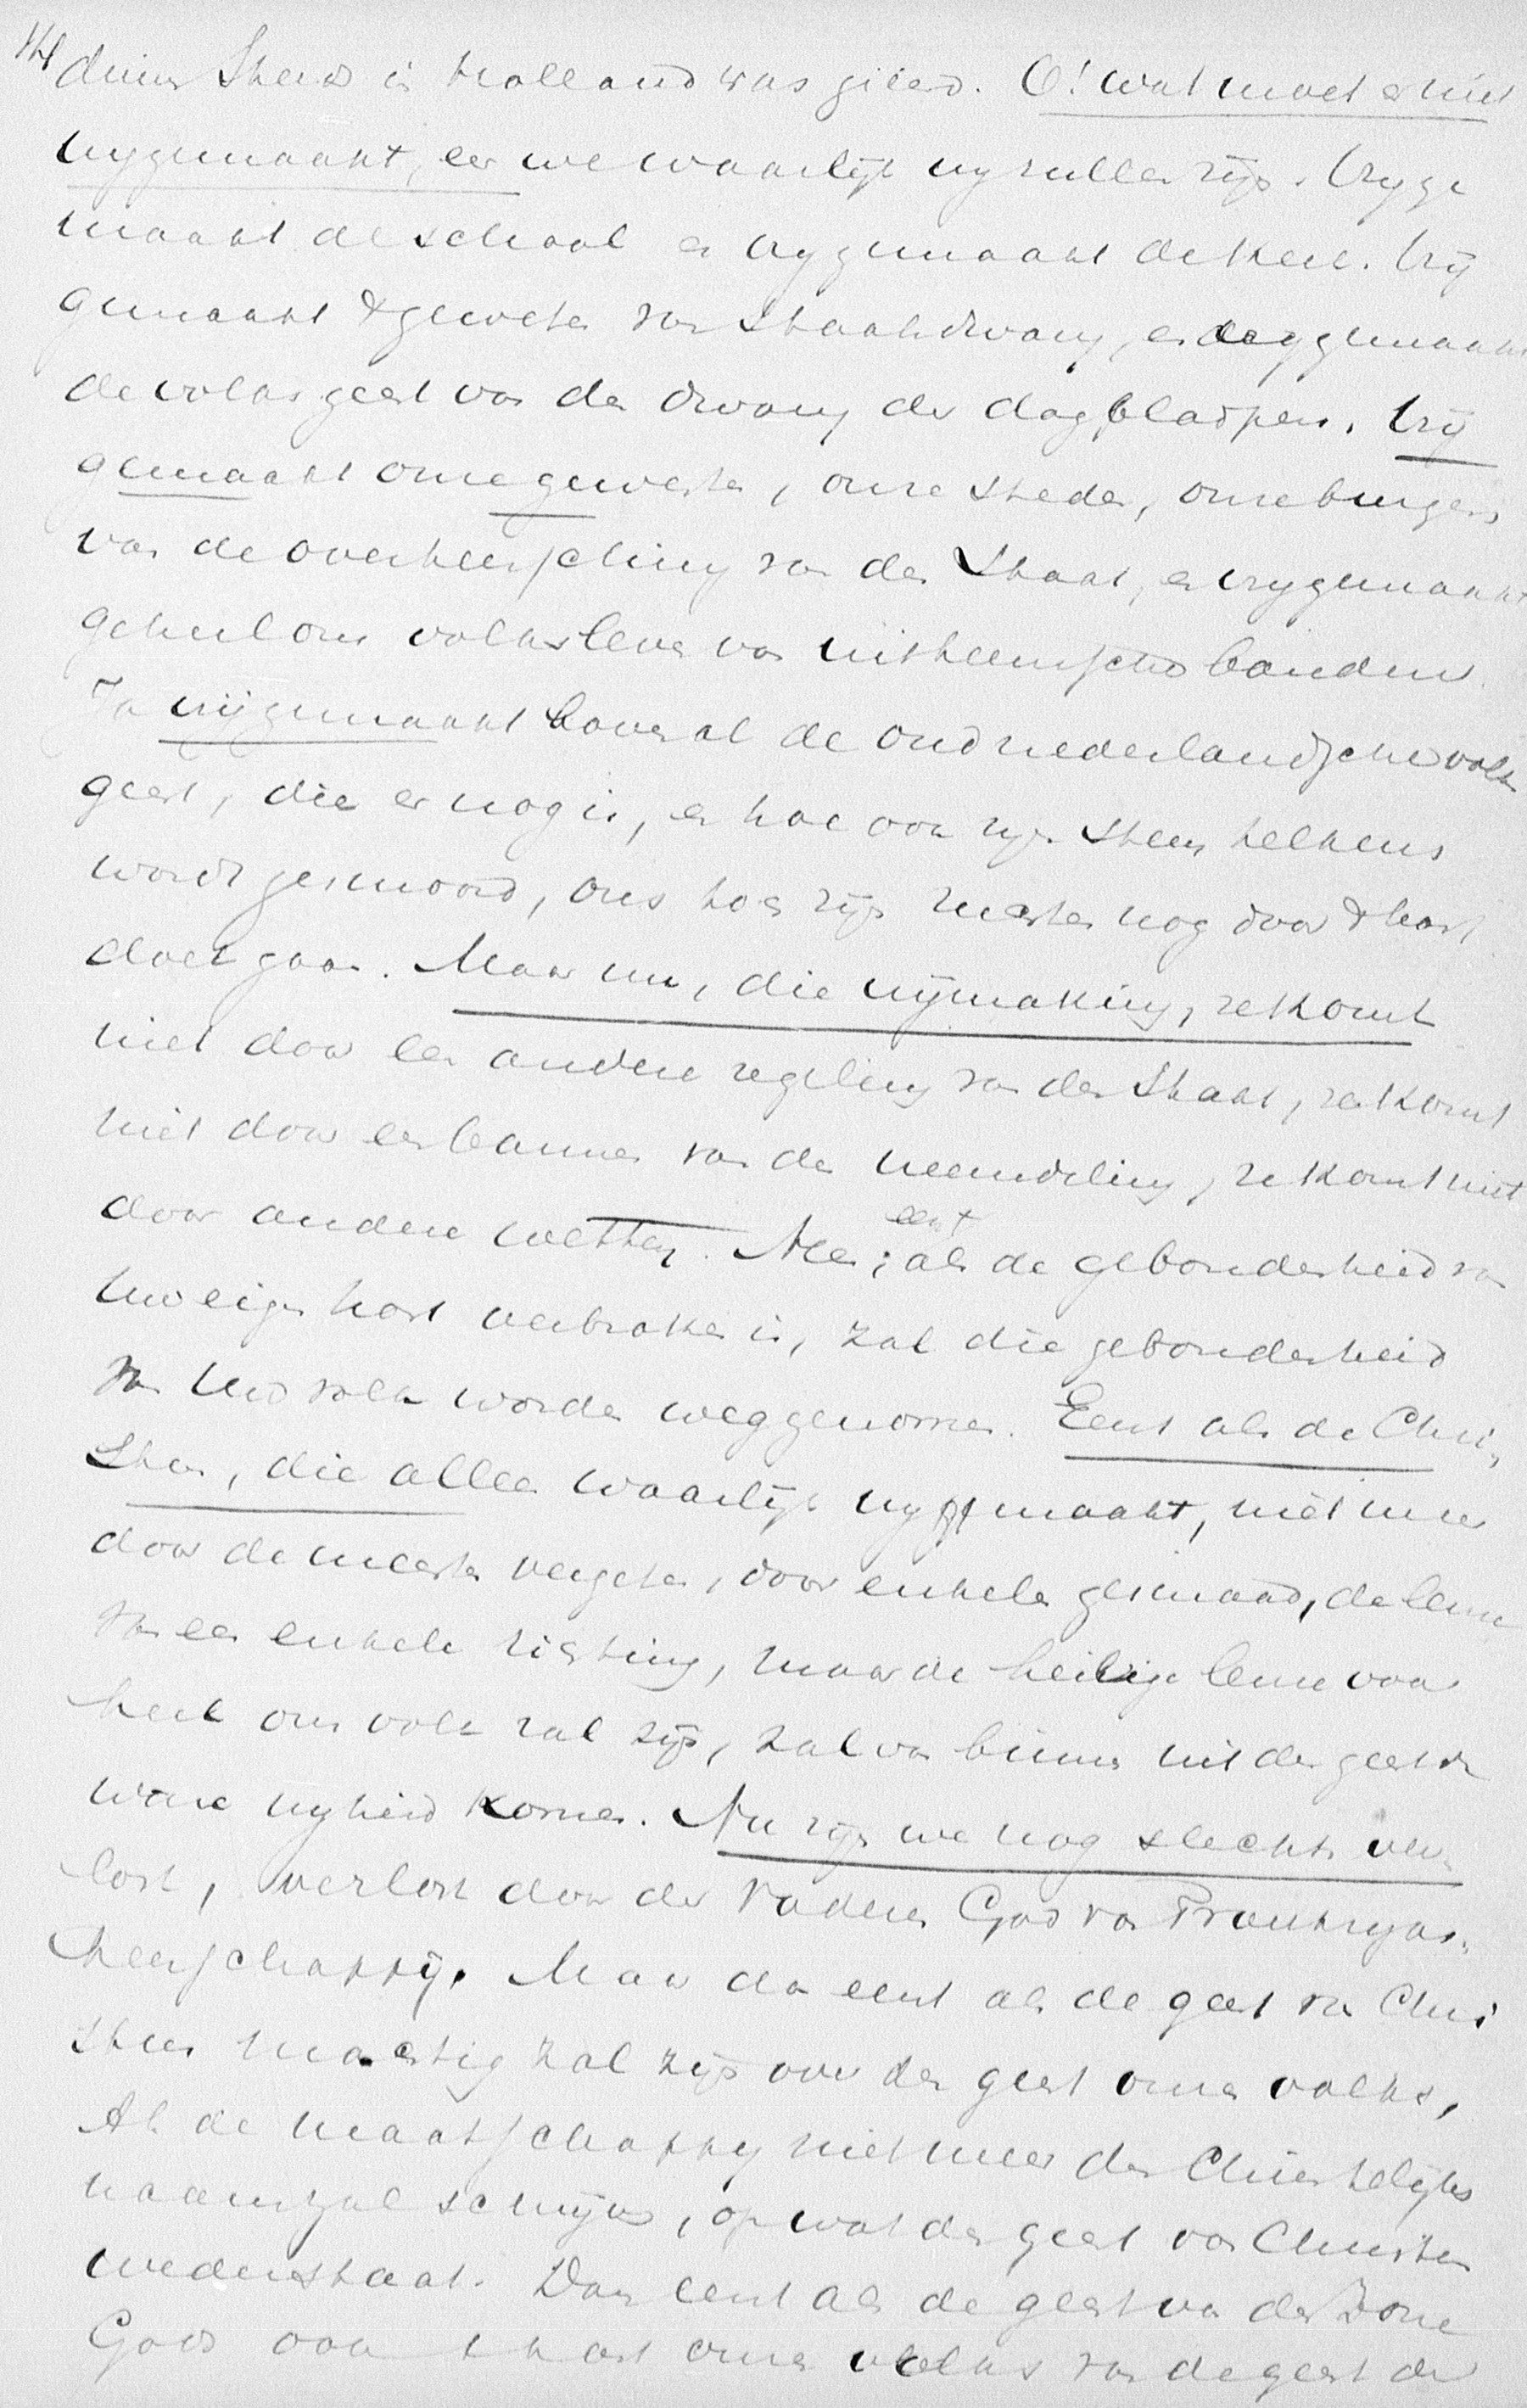 14 dezer Steed in Holland was gilead. O! wat moet er niet
vrygemaakt, eer we waarlijk vry zullen zijn. Vryge
maakt de school en vrygemaakt de kerk. Vrij
gemaakt 't geweten van Staatsdwang, en vrygemaakt
de volksgeest van den dwang der dagbladpers. Vrij
gemaakt onze gewesten, onze steden, onze burgers
van de overheersching van den Staat, en vrygemaakt
geheel ons volksleven van uitheemsche banden.
Ja vrijgemaakt bovenal de oud nederlandsche volks
geest, die er nog is, en hoe ook zijn stem telkens
wordt gesmoord, ons toch zijn machten nog door 't hart
doet gaan. Maar nu, die vrijmaking, ze komt
niet door een andere regeling van den Staat, ze komt
niet door een bannen van den vreemdeling, ze komt niet
door andere wetten. Neen; eerst als de gebondenheid van
Uw eigen hart verbroken is, zal die gebondenheid
van Uw volk worden weggenomen. Eerst als de Chris
tus, die alleen waarlijk vrymaakt, niet meer
door de meesten vergeten, door enkelen gesmaad, de leuze
van een enkele richting, maar de heilige leuze voor
heel ons volk zal zijn, zal van binnen uit den geest de
ware vryheid komen. Nu zijn we nog slechts ver
lost, verlost door der Vaderen God van Frankryks
heerschappij. Maar dan eerst als de geest van Chris
tus machtig zal zijn over den geest onzes volks,
Als de maatschappy niet meer den Christelijken
naam zal schrijven, op wat den geest van Christus
wederstaat. Dan eerst als de geest van den Zone
Gods ook 't hart onzes volks van de geest der